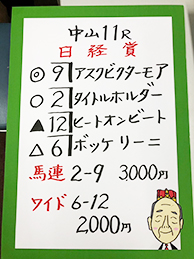 中山11R
日経賞
◎ 9 アスクビクターモア
○ 2 タイトルホルダー
▲ 12 ヒートオンビート
△ 6 ボッケリーニ
馬連 2-9 3000円
ワイド 6-12
2,000円